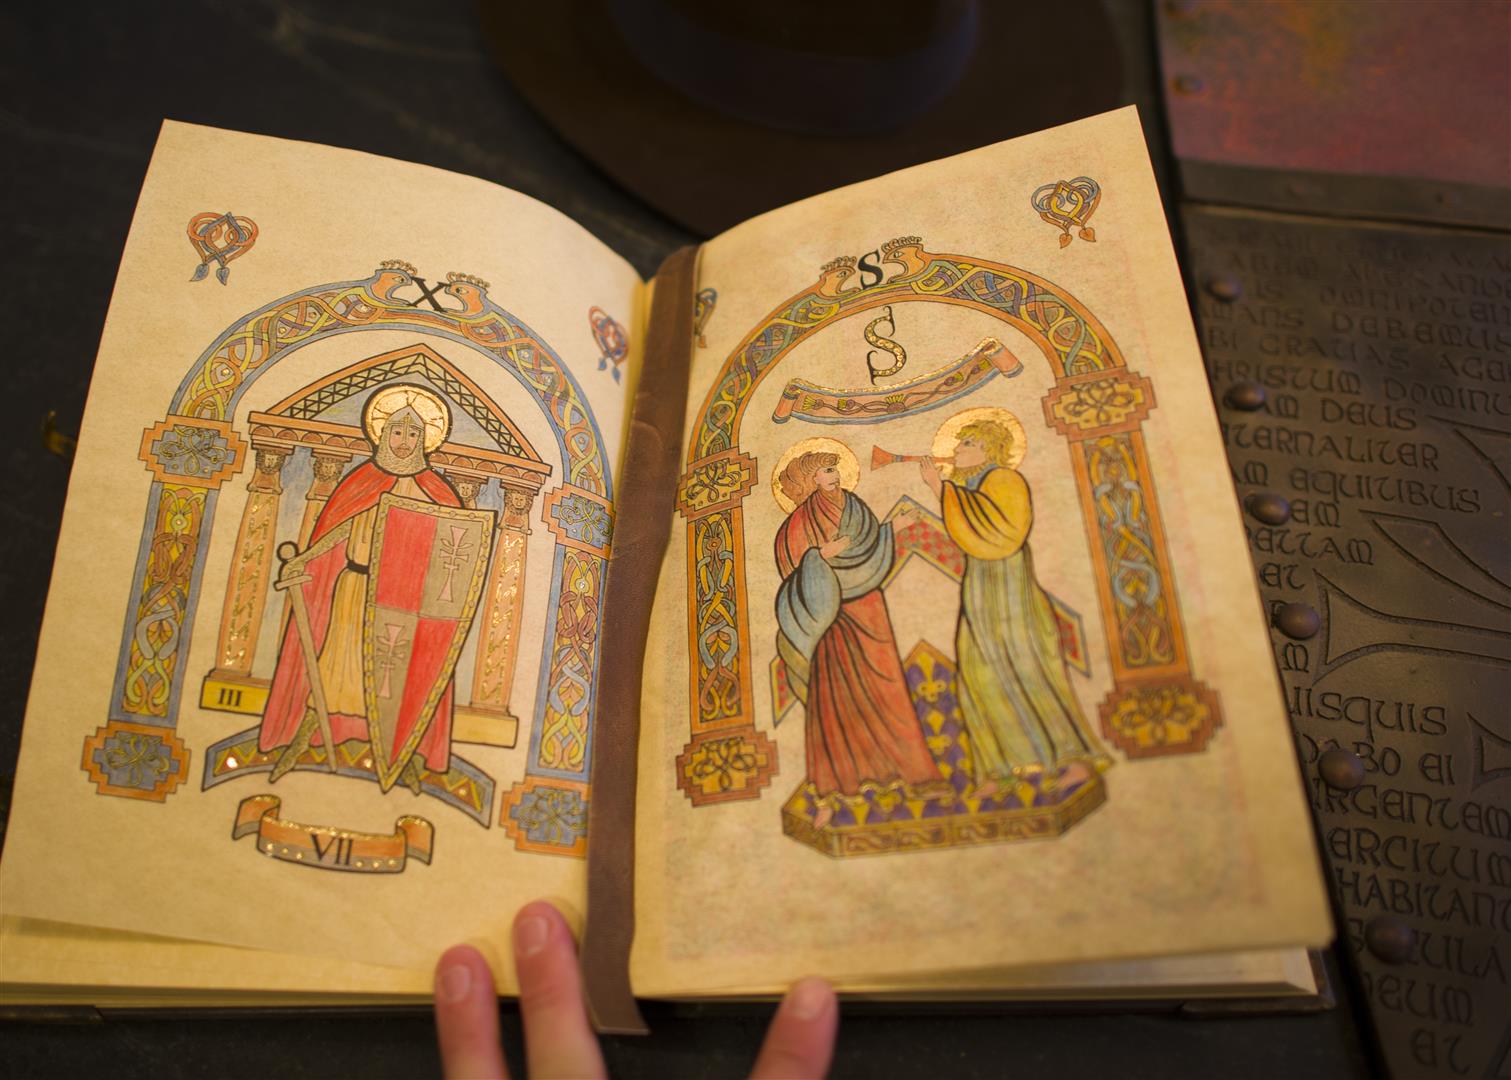 X
III
VII
S
S
OMNIPOTE
MANS DEBEMUS
BI GRATIAS AGE
HRISTUM DOMINU
AM DEUS
TERNALITER
AM EQUITIBUS
EM
PETTAM
ET
M
UISQUIS
DABO EI
ARGENTEM
ERCITUM
HABITAN
S
ULA
NEUM
ET